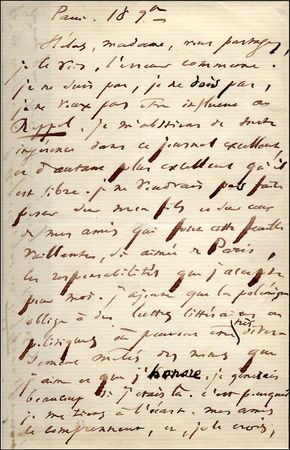 Paris. 18 9bre
Hélas, madame, vous partagez,
je le vois, l'erreur commune.
je ne suis pas, je ne dois pas,
je ne veux pas être influence au
Rappel. je m'abstiens de toute
ingérence dans ce journal excellent,
et d'autant plus excellent qu'il
est libre. je ne voudrais pas faire
peser sur mon fils et sur ceux
de mes amis qui font cette feuille
vaillante, si aimée de Paris,
les responsabilités que j'accepte
pour moi. j'ajoute que la polémique
oblige à des luttes littéraires ou
politiques où peuvent être très diver-
sement mêlés des noms que
j'aime et que j'honore. je gênerais
beaucoup si j'étais là. c'est pourquoi
je me tiens à l'écart. mes amis
le comprennent, et, je le crois,